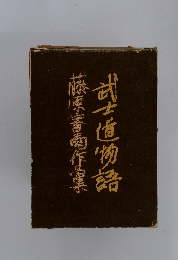 武士道物語
藤原審爾作品集